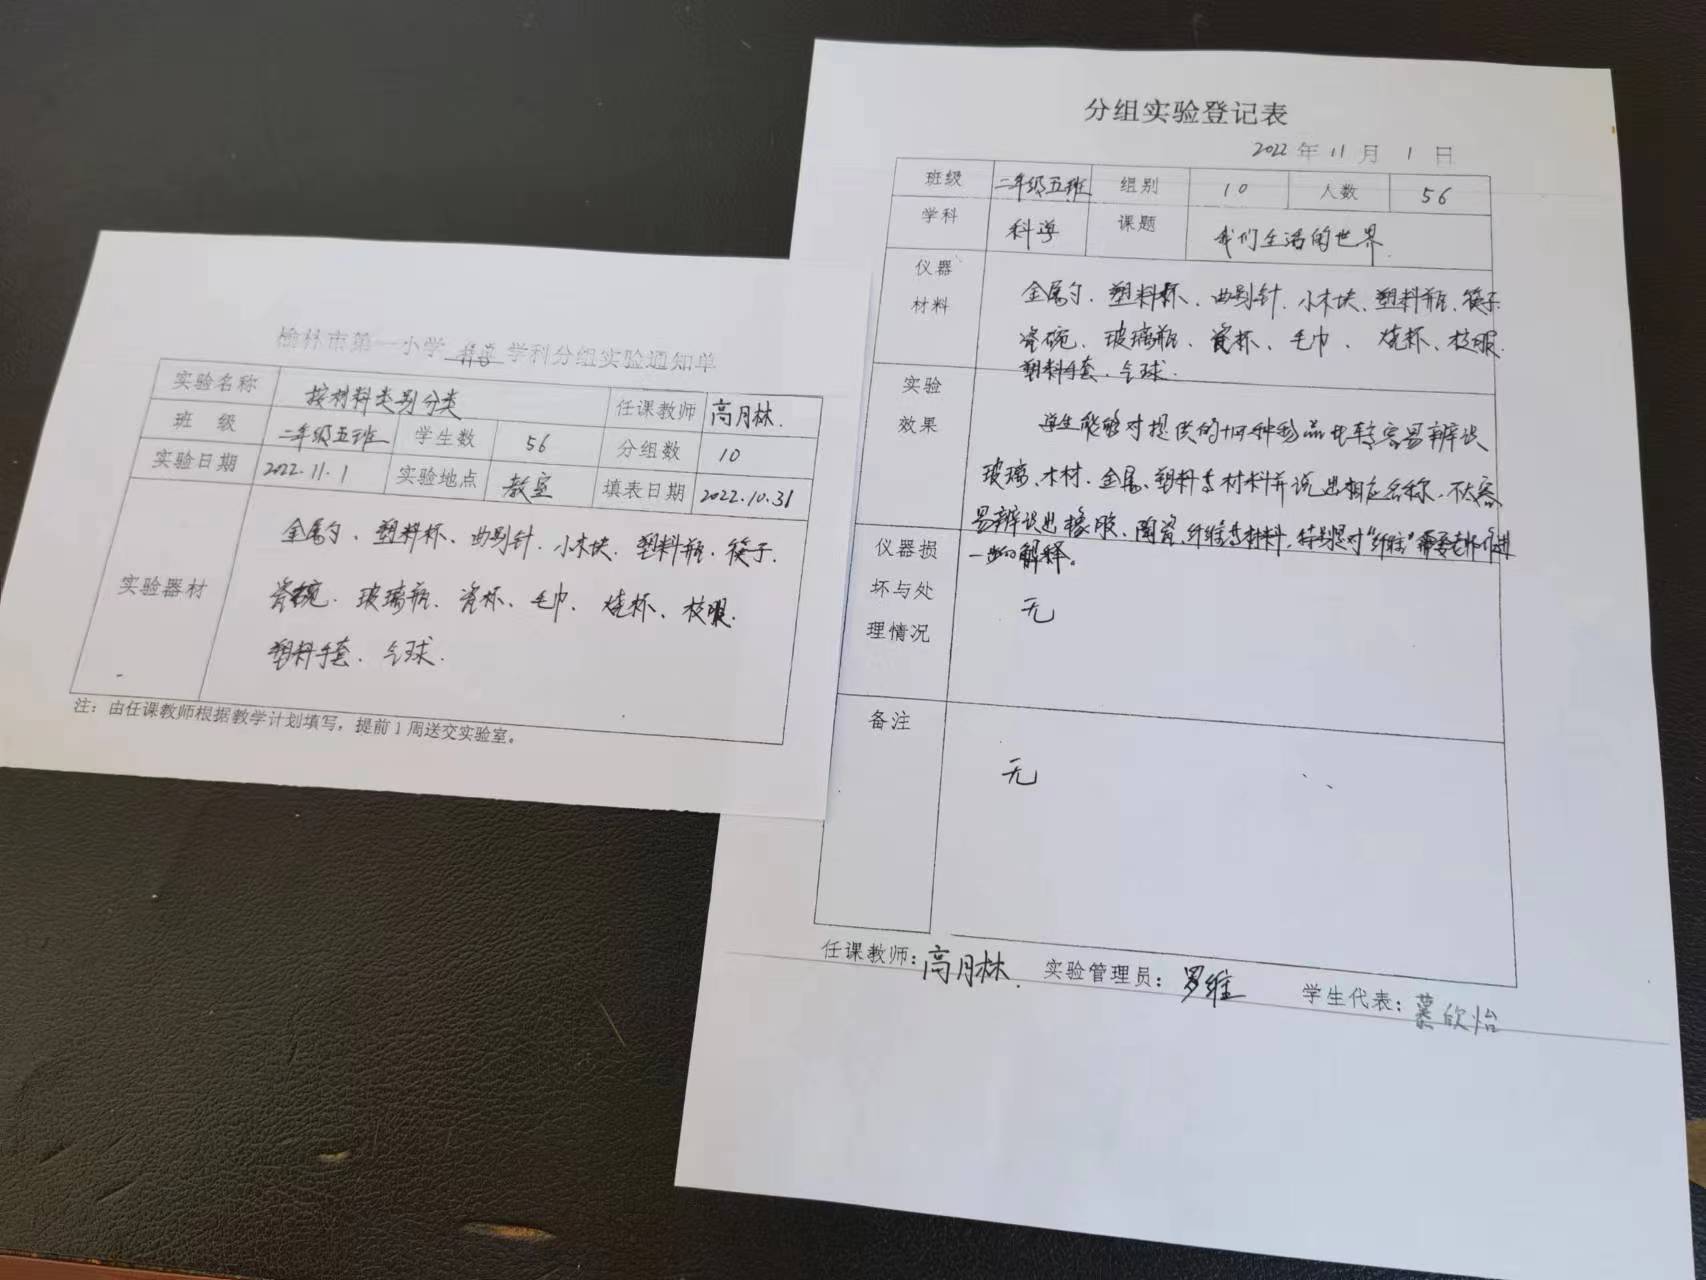 榆林市第一小学 科学 学科分组实验通知单
实验名称 按材料类别分类 任课教师 高月林.
班 级 二年级五班 学生数 56 分组数 10
实验日期 2022.11.1 实验地点 教室 填表日期 2022.10.31
实验器材
金属勺、塑料杯、曲别针、小木块、塑料瓶、筷子、
瓷碗、玻璃瓶、瓷杯、毛巾、烧杯、校服、
塑料手套、气球.
注：由任课教师根据教学计划填写，提前1周送交实验室。
分组实验登记表
2022 年 11 月 1 日
班级 二年级五班 组别 10 人数 56
学科 科学 课题 我们生活的世界
仪器
材料
金属勺、塑料杯、曲别针、小木块、塑料瓶、筷子
瓷碗、玻璃瓶、瓷杯、毛巾、烧杯、校服、
塑料手套、气球.
实验
效果
学生能够对提供的十四种物品比较容易辨认
玻璃、木材、金属、塑料等材料并说出相应名称，不太容
易辨认出橡胶、陶瓷、纤维等材料，特别是对“纤维”需要老师进
一步的解释。
仪器损
坏与处
理情况
无
备注
无
任课教师：高月林. 实验管理员：罗维 学生代表：慕欣怡